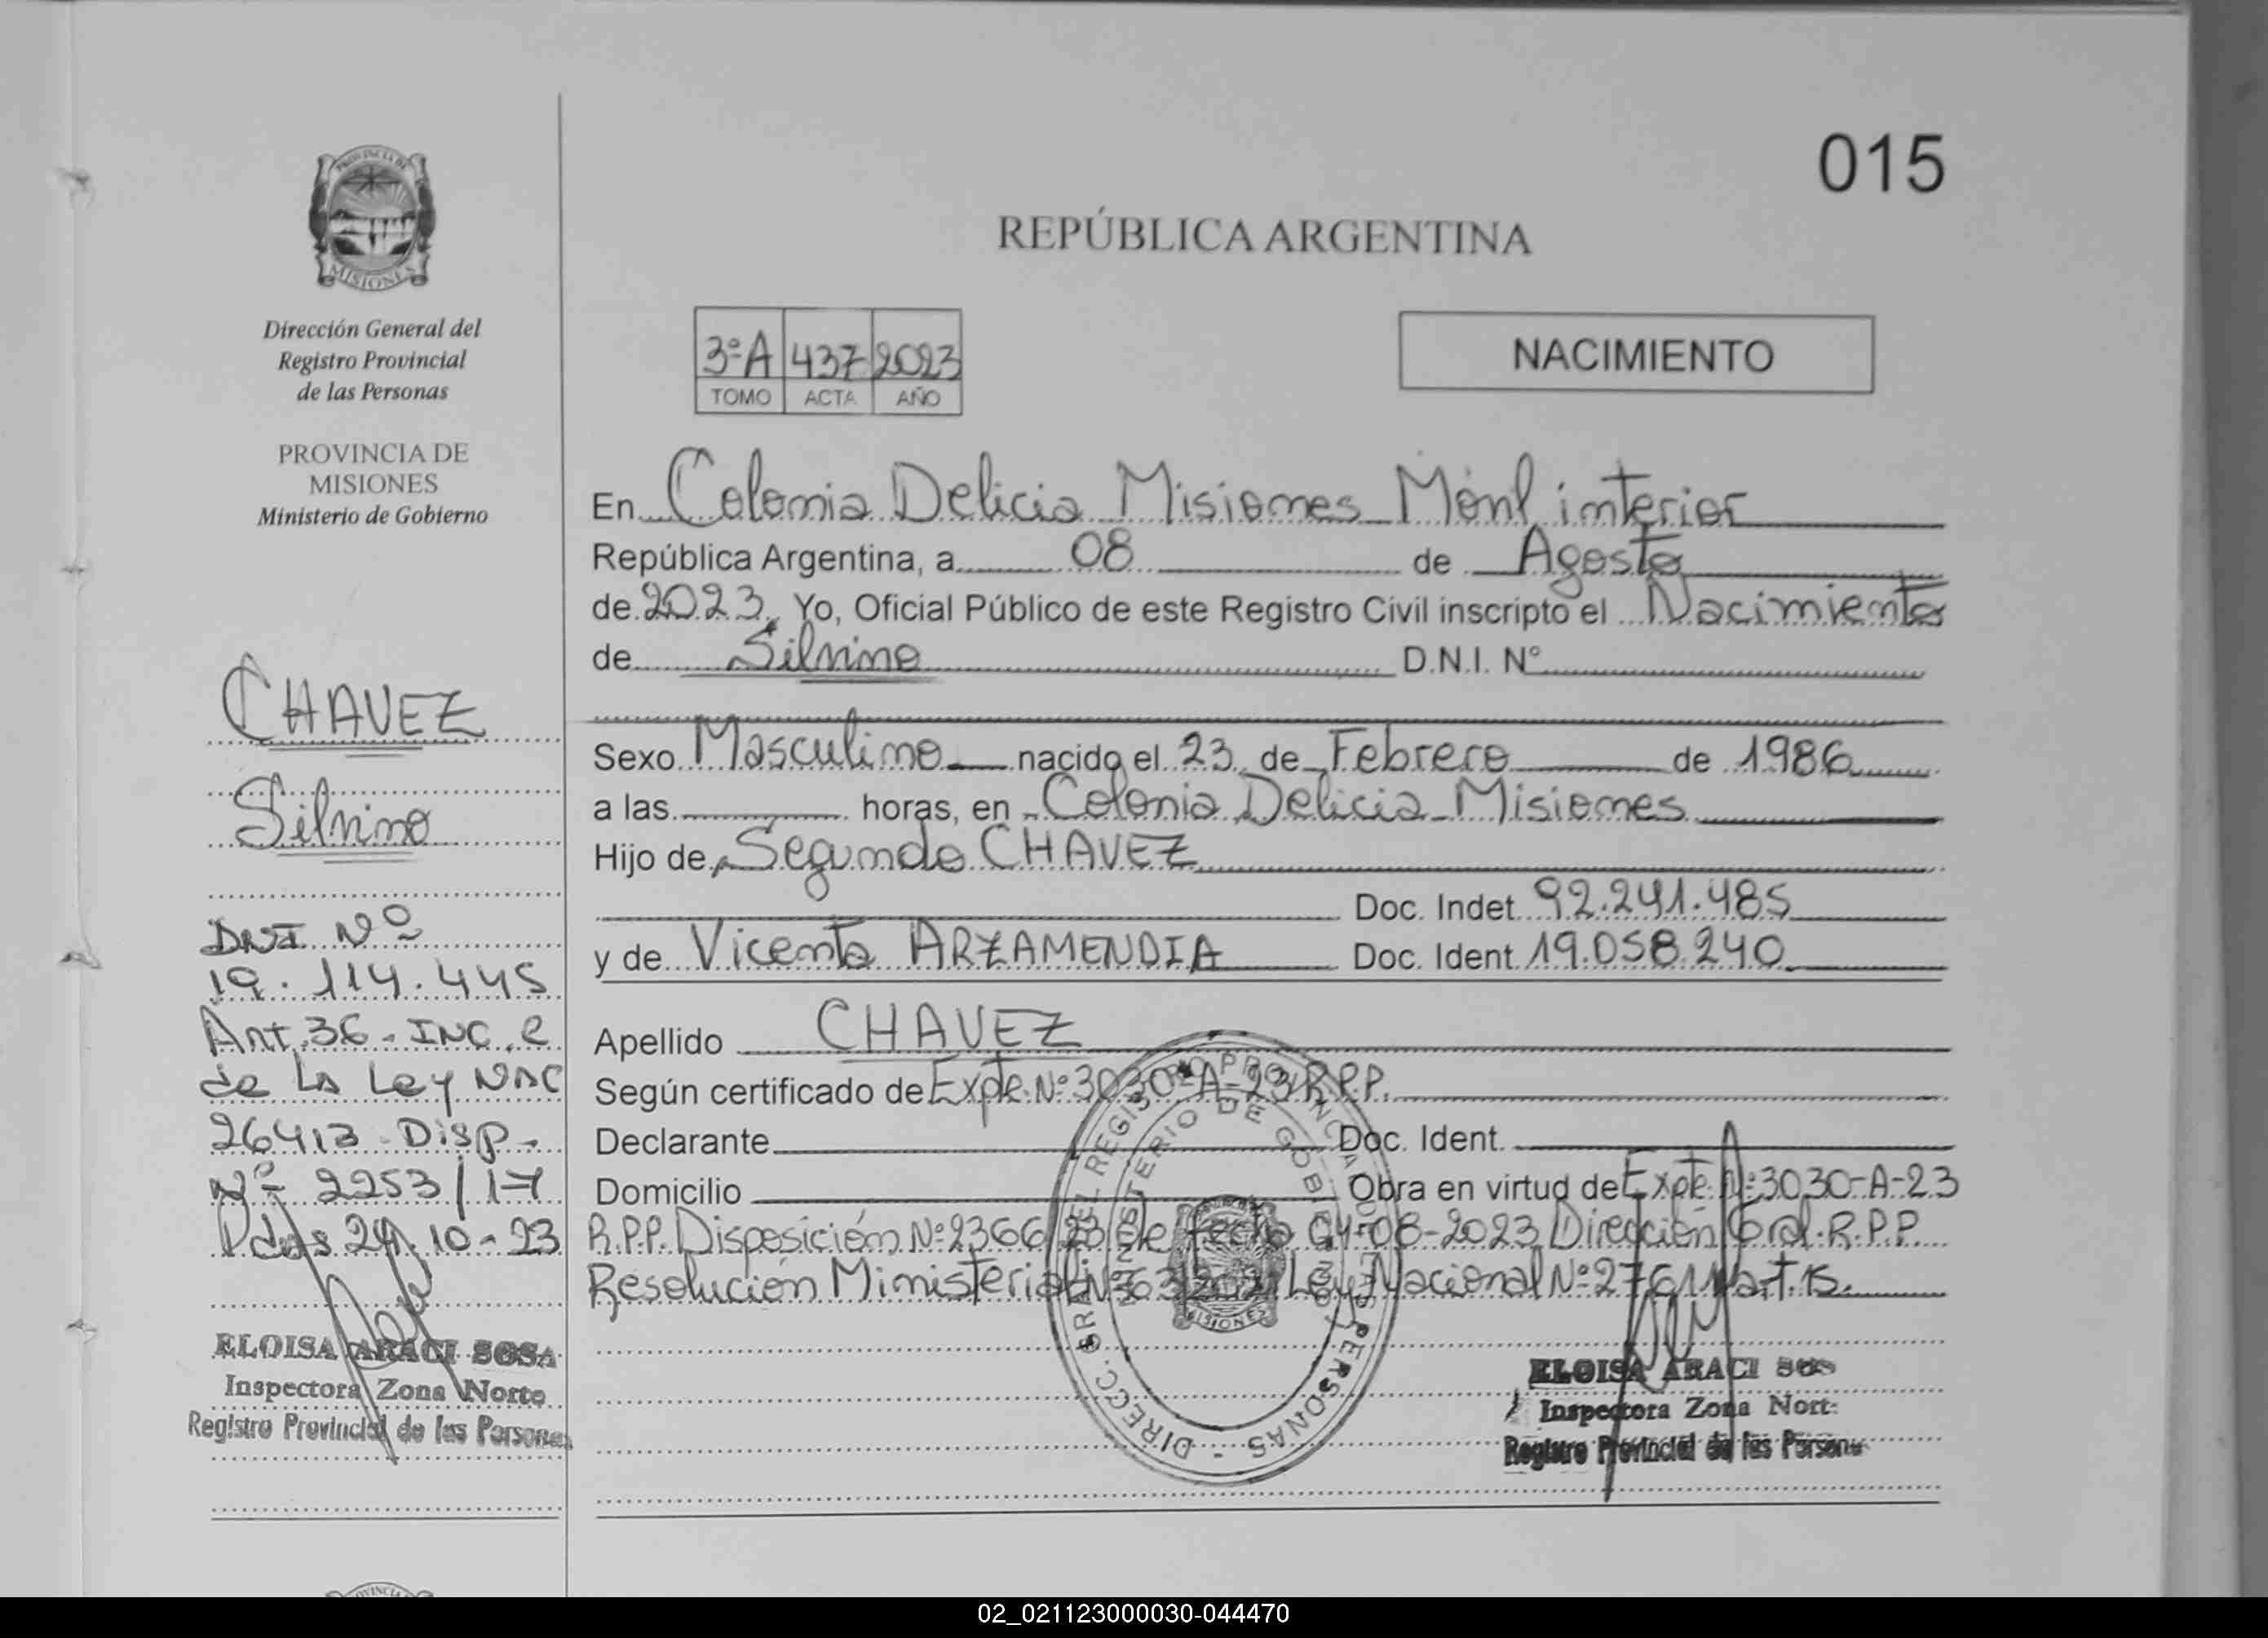 015
PROVINCIA DE
MISIONES
Dirección General del
Registro Provincial
de las Personas
PROVINCIA DE
MISIONES
Ministerio de Gobierno
CHAVEZ
Silvino
DNI Nº
19.114.445
Art.36-INC.C
de LA Ley NAC
26413-Disp-
Nº 2253/17
Pdas 24-10-23
ELOISA ARACI SOSA
Inspectora Zona Norte
Registro Provincial de las Personas
REPÚBLICA ARGENTINA
3ºA 437 2023
TOMO ACTA AÑO
NACIMIENTO
En Colonia Delicia Misiones Móvil interior
República Argentina, a 08 de Agosto
de 2023, Yo, Oficial Público de este Registro Civil inscripto el Nacimiento
de Silvino D.N.I. Nº
Sexo Masculino nacido el 23 de Febrero de 1986
a las horas, en Colonia Delicia-Misiones
Hijo de Segundo CHAVEZ
Doc. Indet. 92.241.485
y de Vicenta ARZAMENDIA Doc. Ident. 19.058.240
Apellido CHAVEZ
Según certificado de Expte.Nº3030-A-23 R.P.P.
Declarante Doc. Ident.
Domicilio Obra en virtud de Expte.Nº3030-A-23
R.P.P. Disposición Nº2366/23 de fecha 04-08-2023 Dirección Gral.R.P.P.
Resolución Ministerial Ley Nacional Nº27611 art.15.
DIRECC. GRAL. DEL REGISTRO PROVINCIAL DE LAS PERSONAS
MINISTERIO DE GOBIERNO
MISIONES
ELOISA ARACI SOS
Inspectora Zona Nort
Registro Provincial de las Person
02_021123000030-044470